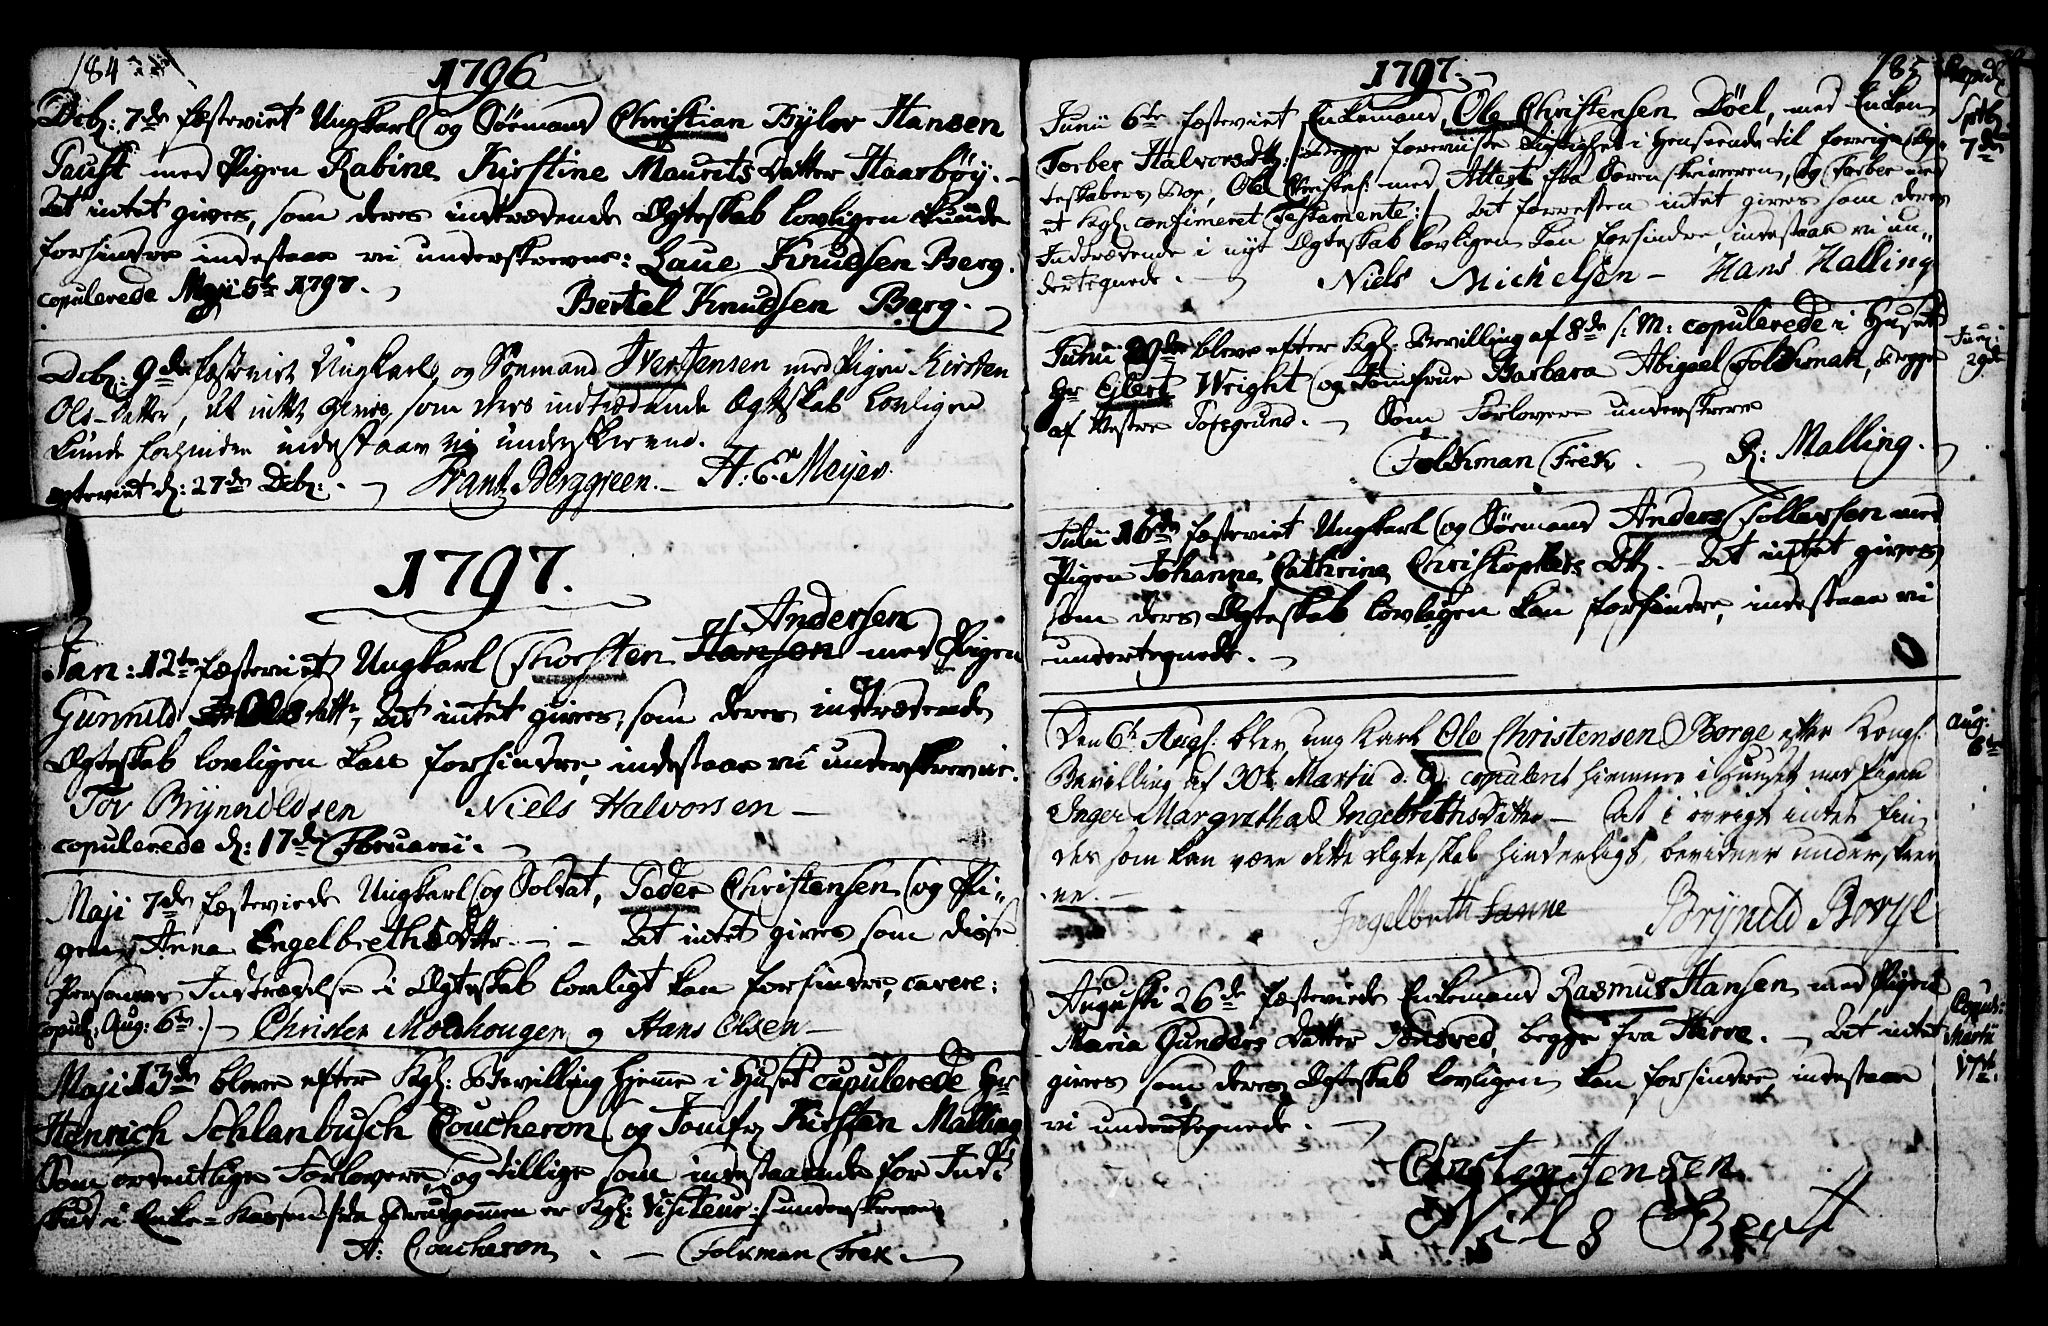 184
1796
Decbr: 7de fæsteviet Ungkarl og Sørmand Christian Byler Hansen
Paust med Pigen Rabine Kirstine Maurits Datter Haarbøy. –
At intet gives, som deres indtrædende Ægteskab lovligen kunde
forhindre indestaar vi underskrevne: Laue Knudsen Berg.
copulerede Maji 5te 1797. Bertel Knudsen Berg.
Decbr: 9de fæsteviet Ungkarl og Sømand Iver Jensen med Pigen Kirsten
Ols-Datter, At intet gives, som deres indtrædende Ægteskab Lovligen
kunde forhindre indestaar vi underskrevne.
egteviet d: 27de Decbr: Frantz Berggreen. – H: E. Meyer.
1797.
Andersen
Jan: 12te fæsteviet Ungkarl Thorsten Hansen med Pigen
Gunnild Ols datter, At intet gives, som deres indtrædende
Ægteskab lovligen kan forhindre, indestaar vi underskrevne.
Tov Brynnildsen Niels Halvorsen –
copulerede d: 17de Februarii.
Maji 7de fæsteviede Ungkarl og Soldat, Peder Christensen og Pi-
gen Anna Engelbrethsdttr. – At intet gives som disse
Personers Indtrædelse i Ægteskab lovligt kan forhindre, cavere:
copul: Aug: 6te.) Christen Moldhougen og Hans Olsen –
Maji 13de bleve efter Kgl: Bevilling hjeme i Huset copulerede Hr
Henrich Schlanbusch Coucheron og Jomfr Kirsten Malling
Som ordentlige Forlovere, og tillige som indestaaende for Ind-
skud i Enke-Kassen da Brudgommen er Kgl: Visiteur: underskrevne
H: Coucheron. – Folkman Frek.
1797.
185
Junii 6te fæsteviet Enkemand, Ole Christensen Døel, med Enken
Torber Halvorsdtr: begge foreviiste Rigtighed i Henseende til forrige Æg-
teskabers Boe, Ole Christens: med Attest fra Sorenskriveren, og Torber med
et Kgl. confirmeret Testamente: At forresten intet gives som deres
Indtrædende i nyt Ægteskab lovligen kan forhindre, indestaar vi un-
dertegnede. Niels Michelsen – Hans Halling
Copul:
Sptbr
7de
Junii 29de bleve efter Kgl. Bevilling af 8de s: M: copulerede i Huset
Hr Eilert Wright og Jomfrue Barbara Abigael Folkman, begge
af Westre Porsgrund. – Som Forlovere underskrive
Folkman Frek. R: Malling.
Juni
29de
Julii 16de fæsteviet Ungkarl og Sørmand Anders Tollefsen med
Pigen Johanne Cathrine Christophers Dtr. – At intet gives
som deres Ægteskab lovligen kan forhindre, indestaar vi
undertegnede.
Den 6te Aug: blev ung Karl Ole Christensen Borge efter Kongl:
Bevilling af 30te Martii d: A: copuleret hiemme i Huuset med Pigen
Inger Margretha Ingebrethsdatter – At i øvrigt intet fin-
des som kan være dette Ægteskab hinderligt, bevidner underskrev
ne. –
Ingelbrett Fanne Brynild Borge
Aug:
6te
Augusti 26de fæsteviede Enkemand Rasmus Hansen med Pigen
Maria Gunders Datter, begge fra Herre. – At intet
gives som deres Ægteskab lovligen kan forhindre indestaar
vi undertegnede.
Copul:
Martii
17te.
Christen Jensen
Niels